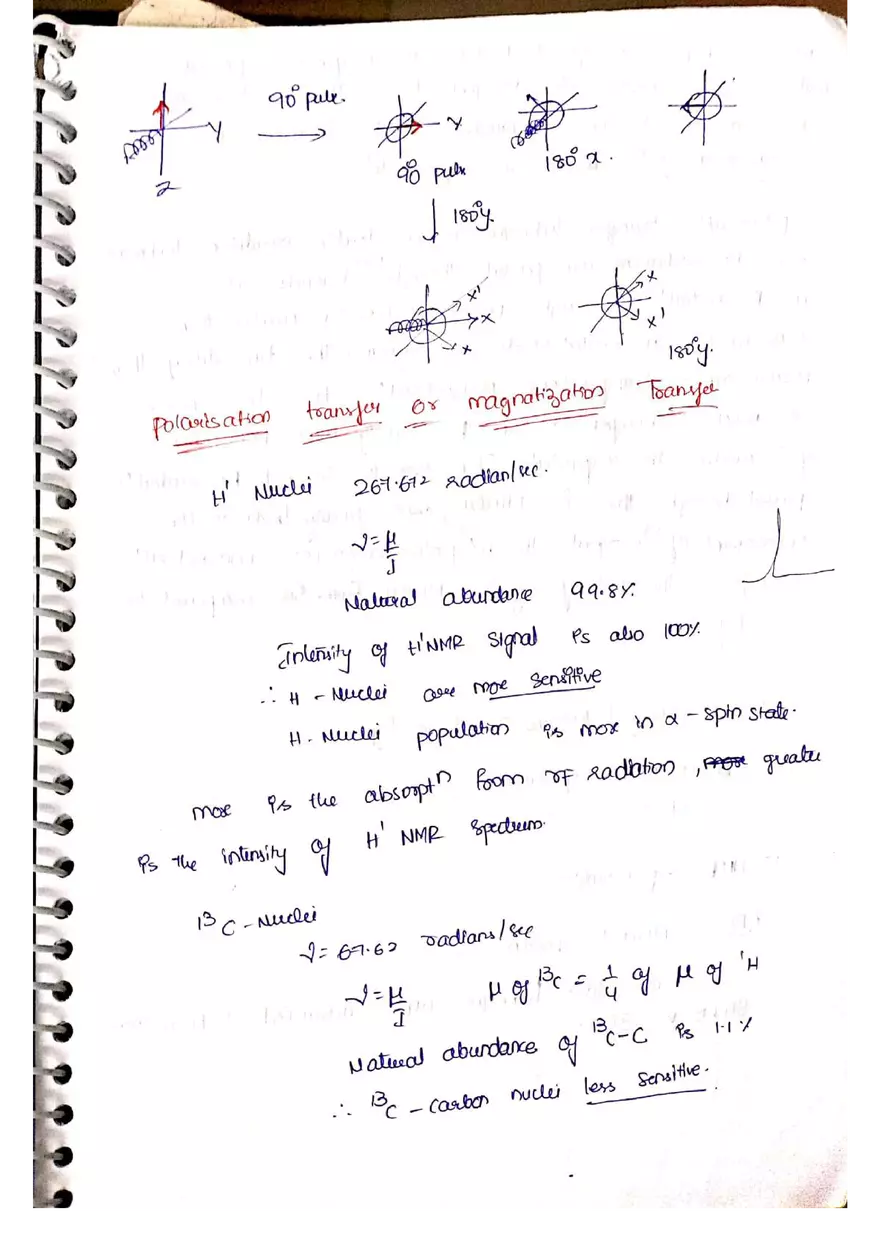 90° pulse.
Y
Z
Y
90° pulse
180° x.
180°y.
x'
x
x
x
x'
180°y.
Polarisation transfer or magnatization Transfer
H' Nuclei 267.612 radian/sec.
γ = μ/I
Natural abundance 99.8%
Intensity of H' NMR Signal is also 100%
∴ H - Nuclei are more sensitive
H. Nuclei population is more in α - spin state.
more is the absorptⁿ from rf radiation, more greater
is the intensity of H' NMR spectrum.
¹³C - Nuclei
γ = 67.62 radians/sec
γ = μ/I μ of ¹³C = 1/4 of μ of ¹H
Natural abundance of ¹³C-C is 1.1%
∴ ¹³C - carbon nuclei less sensitive.